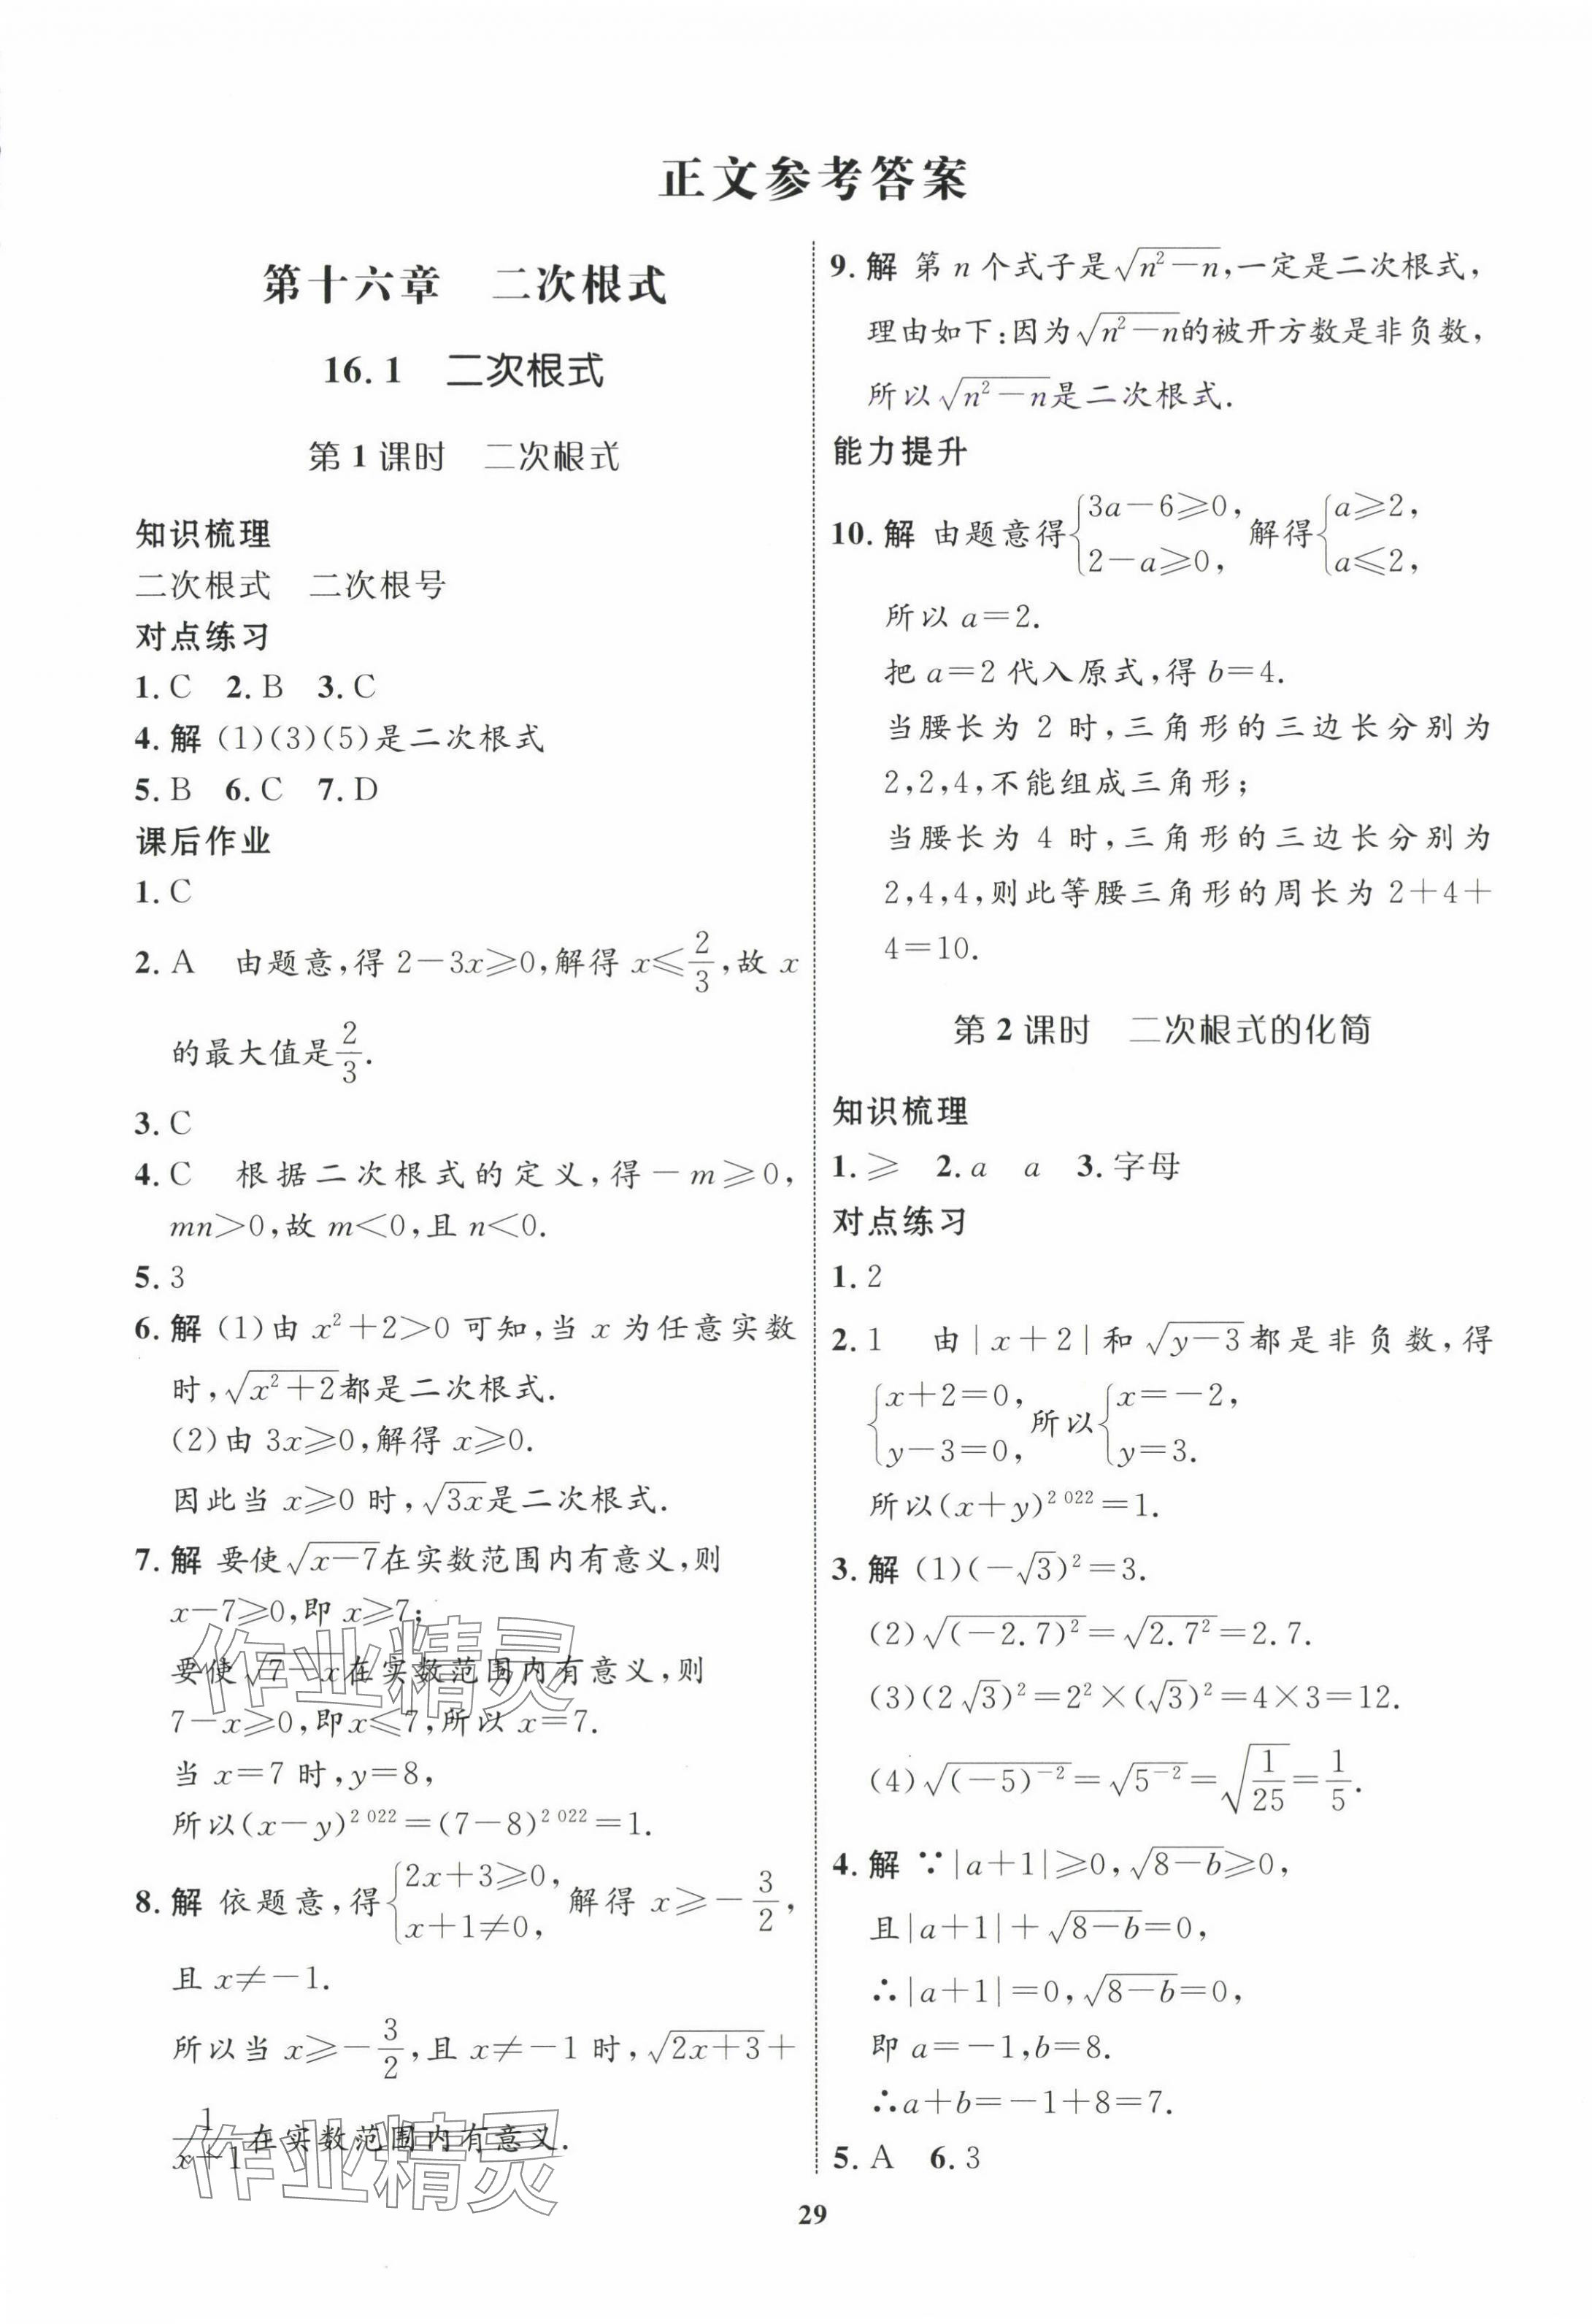 正文参考答案
第十六章　二次根式
16.1　二次根式
第1课时　二次根式
知识梳理
二次根式　二次根号
对点练习
1.C　2.B　3.C
4.解 (1)(3)(5)是二次根式
5.B　6.C　7.D
课后作业
1.C
2.A　由题意,得2－3x≥0,解得x≤2/3,故x
的最大值是2/3.
3.C
4.C　根据二次根式的定义,得－m≥0,
mn>0,故m<0,且n<0.
5.3
6.解 (1)由x²＋2>0可知,当x为任意实数
时,√(x²＋2)都是二次根式.
(2)由3x≥0,解得x≥0.
因此当x≥0时,√(3x)是二次根式.
7.解 要使√(x－7)在实数范围内有意义,则
x－7≥0,即x≥7;
要使√(7－x)在实数范围内有意义,则
7－x≥0,即x≤7,所以x＝7.
当x＝7时,y＝8,
所以(x－y)^(2 022)＝(7－8)^(2 022)＝1.
8.解 依题意,得{2x＋3≥0, x＋1≠0, 解得x≥－3/2,
且x≠－1.
所以当x≥－3/2,且x≠－1时,√(2x＋3)＋
1/(x＋1)在实数范围内有意义.
9.解 第n个式子是√(n²－n),一定是二次根式,
理由如下:因为√(n²－n)的被开方数是非负数,
所以√(n²－n)是二次根式.
能力提升
10.解 由题意得{3a－6≥0, 2－a≥0, 解得{a≥2, a≤2,
所以a＝2.
把a＝2代入原式,得b＝4.
当腰长为2时,三角形的三边长分别为
2,2,4,不能组成三角形;
当腰长为4时,三角形的三边长分别为
2,4,4,则此等腰三角形的周长为2＋4＋
4＝10.
第2课时　二次根式的化简
知识梳理
1.≥　2.a　a　3.字母
对点练习
1.2
2.1　由|x＋2|和√(y－3)都是非负数,得
{x＋2＝0, y－3＝0, 所以{x＝－2, y＝3.
所以(x＋y)^(2 022)＝1.
3.解 (1)(－√3)²＝3.
(2)√((－2.7)²)＝√(2.7²)＝2.7.
(3)(2√3)²＝2²×(√3)²＝4×3＝12.
(4)√((－5)⁻²)＝√(5⁻²)＝√(1/25)＝1/5.
4.解 ∵|a＋1|≥0,√(8－b)≥0,
且|a＋1|＋√(8－b)＝0,
∴|a＋1|＝0,√(8－b)＝0,
即a＝－1,b＝8.
∴a＋b＝－1＋8＝7.
5.A　6.3
作业精灵
作业精灵
29